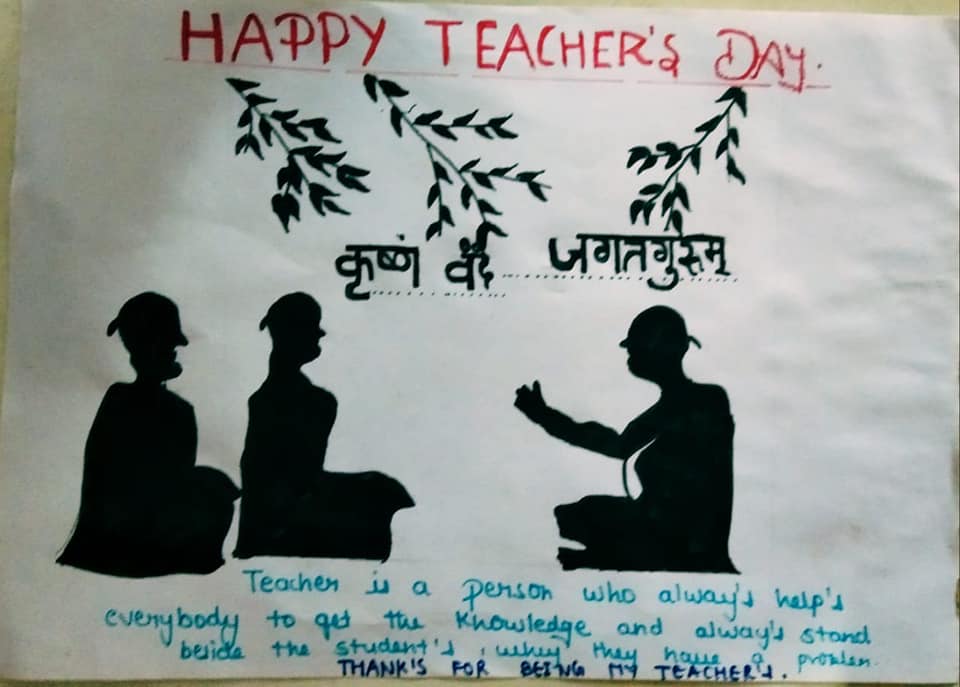 HAPPY TEACHER'S DAY.
कृष्णं वंदे जगतगुरूम्
Teacher is a person who always's help's
everybody to get the knowledge and always's stand
beside the student's, they have a problem.
THANK'S FOR BEING MY TEACHER'S.